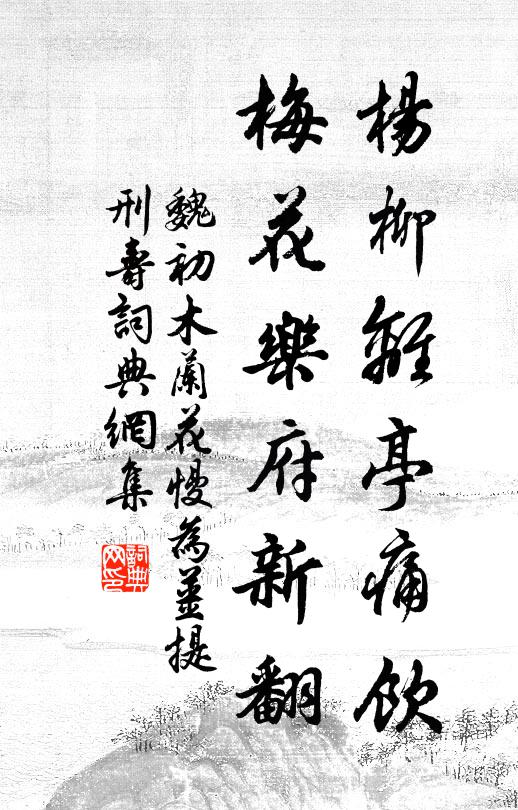 楊柳離亭痛飲
梅花樂府新翻
魏初木蘭花慢為姜提
刑壽詞典網集
詞典网印